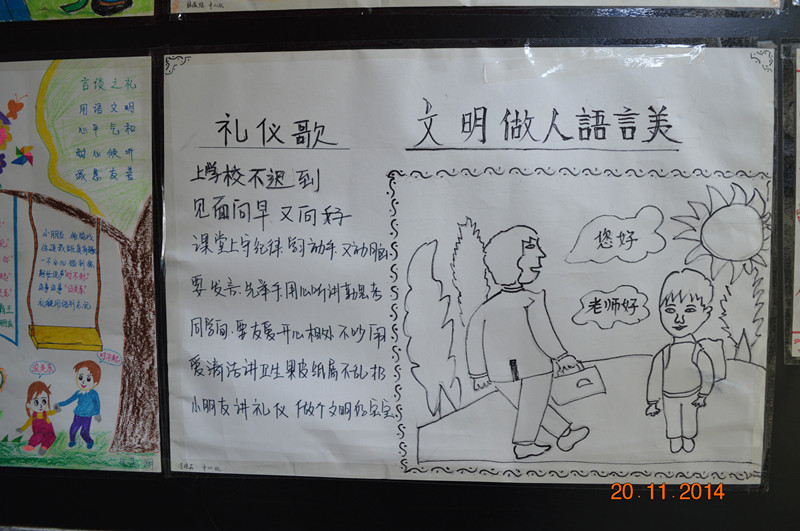 言谈之礼
用语文明
心平气和
耐心倾听
诚恳友善
小朋友 做游戏
"对不起"
"没关系"
没关系
对不起
礼仪歌
上学校不迟到
见面问早 又问好
课堂上守纪律 动手 又动脑
要发言,先举手,用心听讲勤思考
同学间,要友爱,开心相处 不吵闹
爱清洁讲卫生果皮纸屑不乱扔
小朋友讲礼仪 做个文明好宝宝
文明做人語言美
您好
老师好
20.11.2014